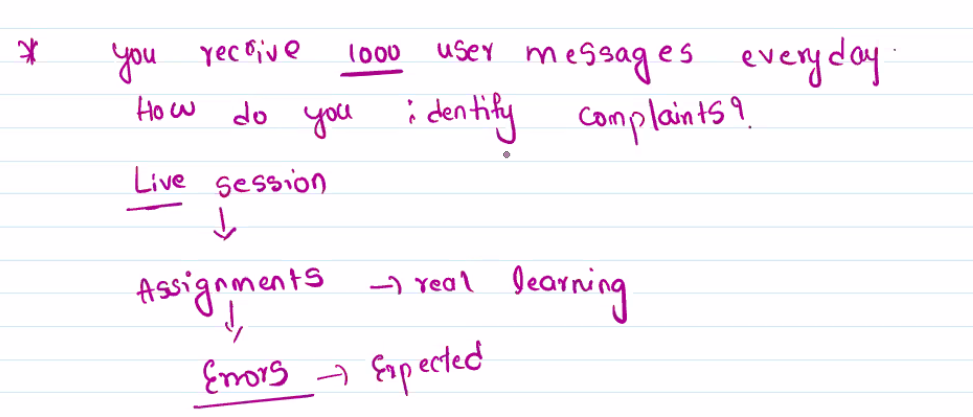 * you receive 1000 user messages everyday.
How do you identify complaints?
Live session
↓
Assignments → real learning
↓
Errors → Expected